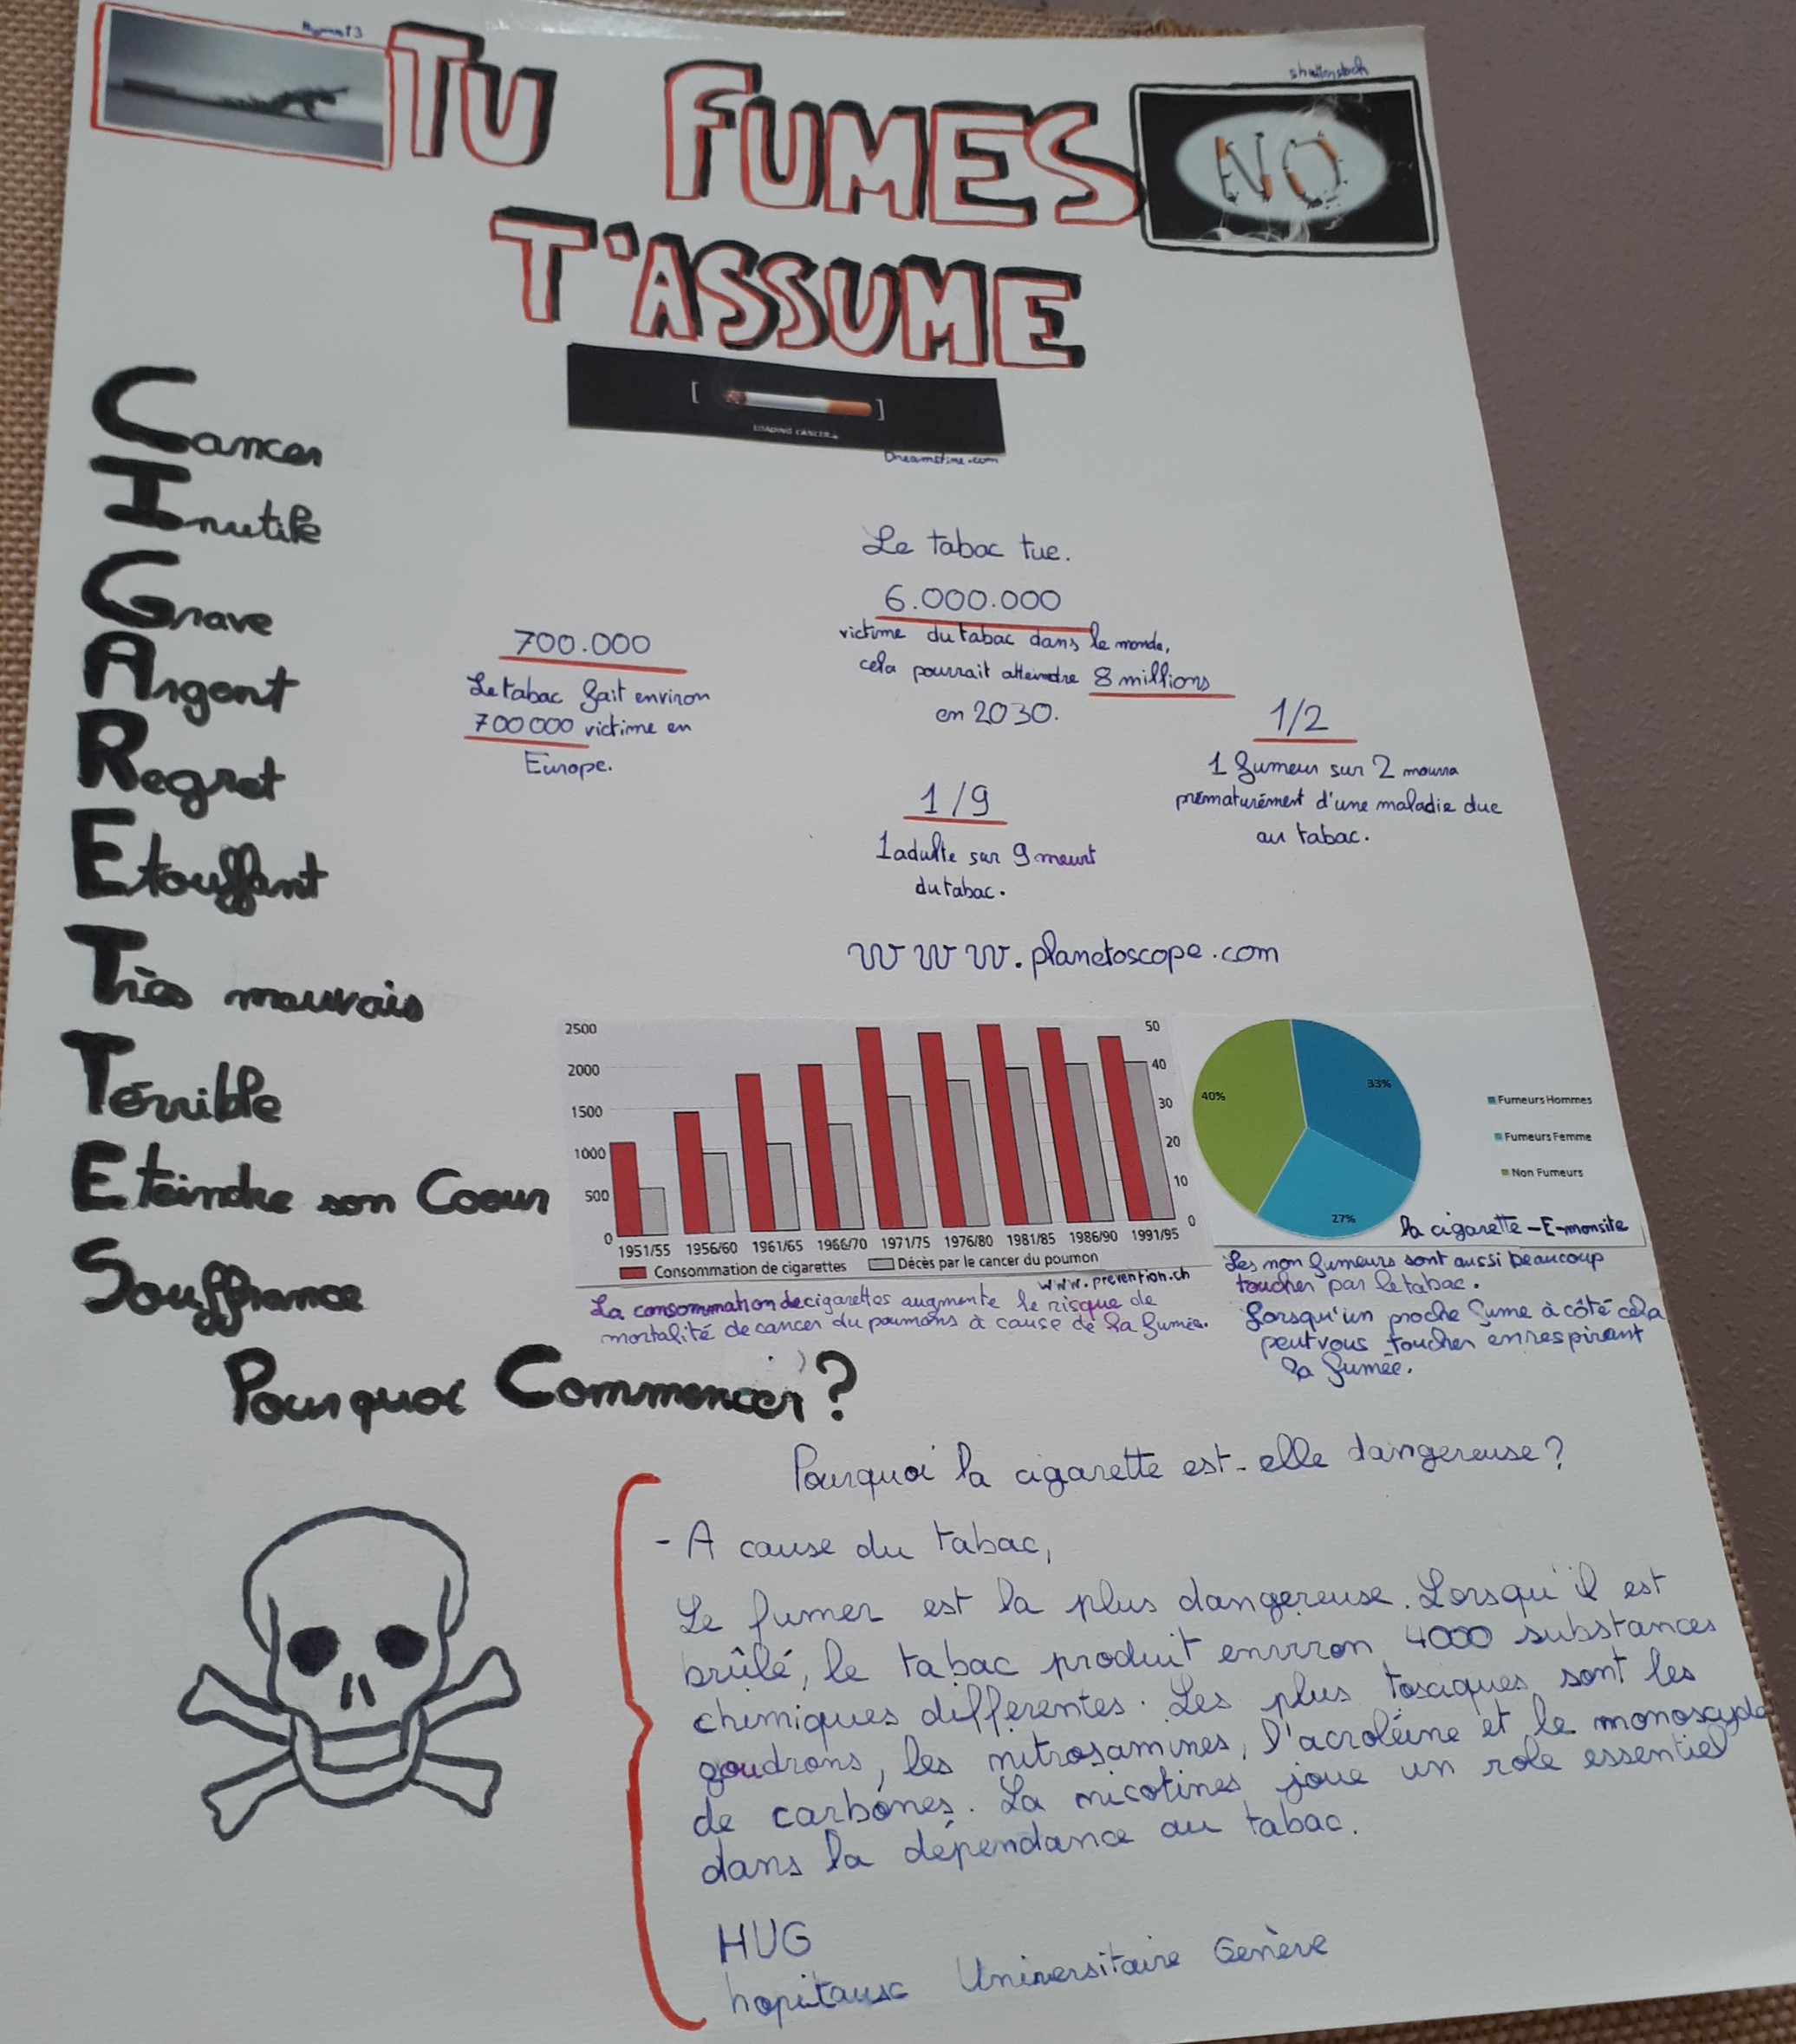 TU FUMES
shutterstock
NO
T'ASSUME
LOADING CANCER
Dreamstime.com
Cancer
Inutile
Grave
Argent
Regret
Etouffant
Très mauvais
Térrible
Eteindre son Coeur
Souffrance
Pourquoi Commencer?
Le tabac tue.
6.000.000
victime du tabac dans le monde,
cela pourrait atteindre 8 millions
en 2030.
700.000
Le tabac fait environ
700000 victime en
Europe.
1/2
1 fumeur sur 2 mourra
prématurément d'une maladie due
au tabac.
1/9
1 adulte sur 9 meurt
du tabac.
www.planetoscope.com
2500
2000
1500
1000
500
0
50
40
30
20
10
0
1951/55 1956/60 1961/65 1966/70 1971/75 1976/80 1981/85 1986/90 1991/95
Consommation de cigarettes Décès par le cancer du poumon
www.prevention.ch
La consommation de cigarettes augmente le risque de
mortalité de cancer du poumons à cause de la fumée.
33%
40%
27%
Fumeurs Hommes
Fumeurs Femme
Non Fumeurs
la cigarette-E-monsite
Les non fumeurs sont aussi beaucoup
toucher par le tabac.
Lorsqu'un proche fume à côté cela
peut vous toucher en respirant
la fumée.
Pourquoi la cigarette est-elle dangereuse?
- A cause du tabac,
Le fumer est la plus dangereuse. Lorsqu'il est
brûlé, le tabac produit environ 4000 substances
chimiques différentes. Les plus toxiques sont les
goudrons, les nitrosamines, l'acroléine et le monoxyde
de carbones. La nicotines joue un role essentiel
dans la dépendance au tabac.
HUG
hopitaux Universitaire Genève